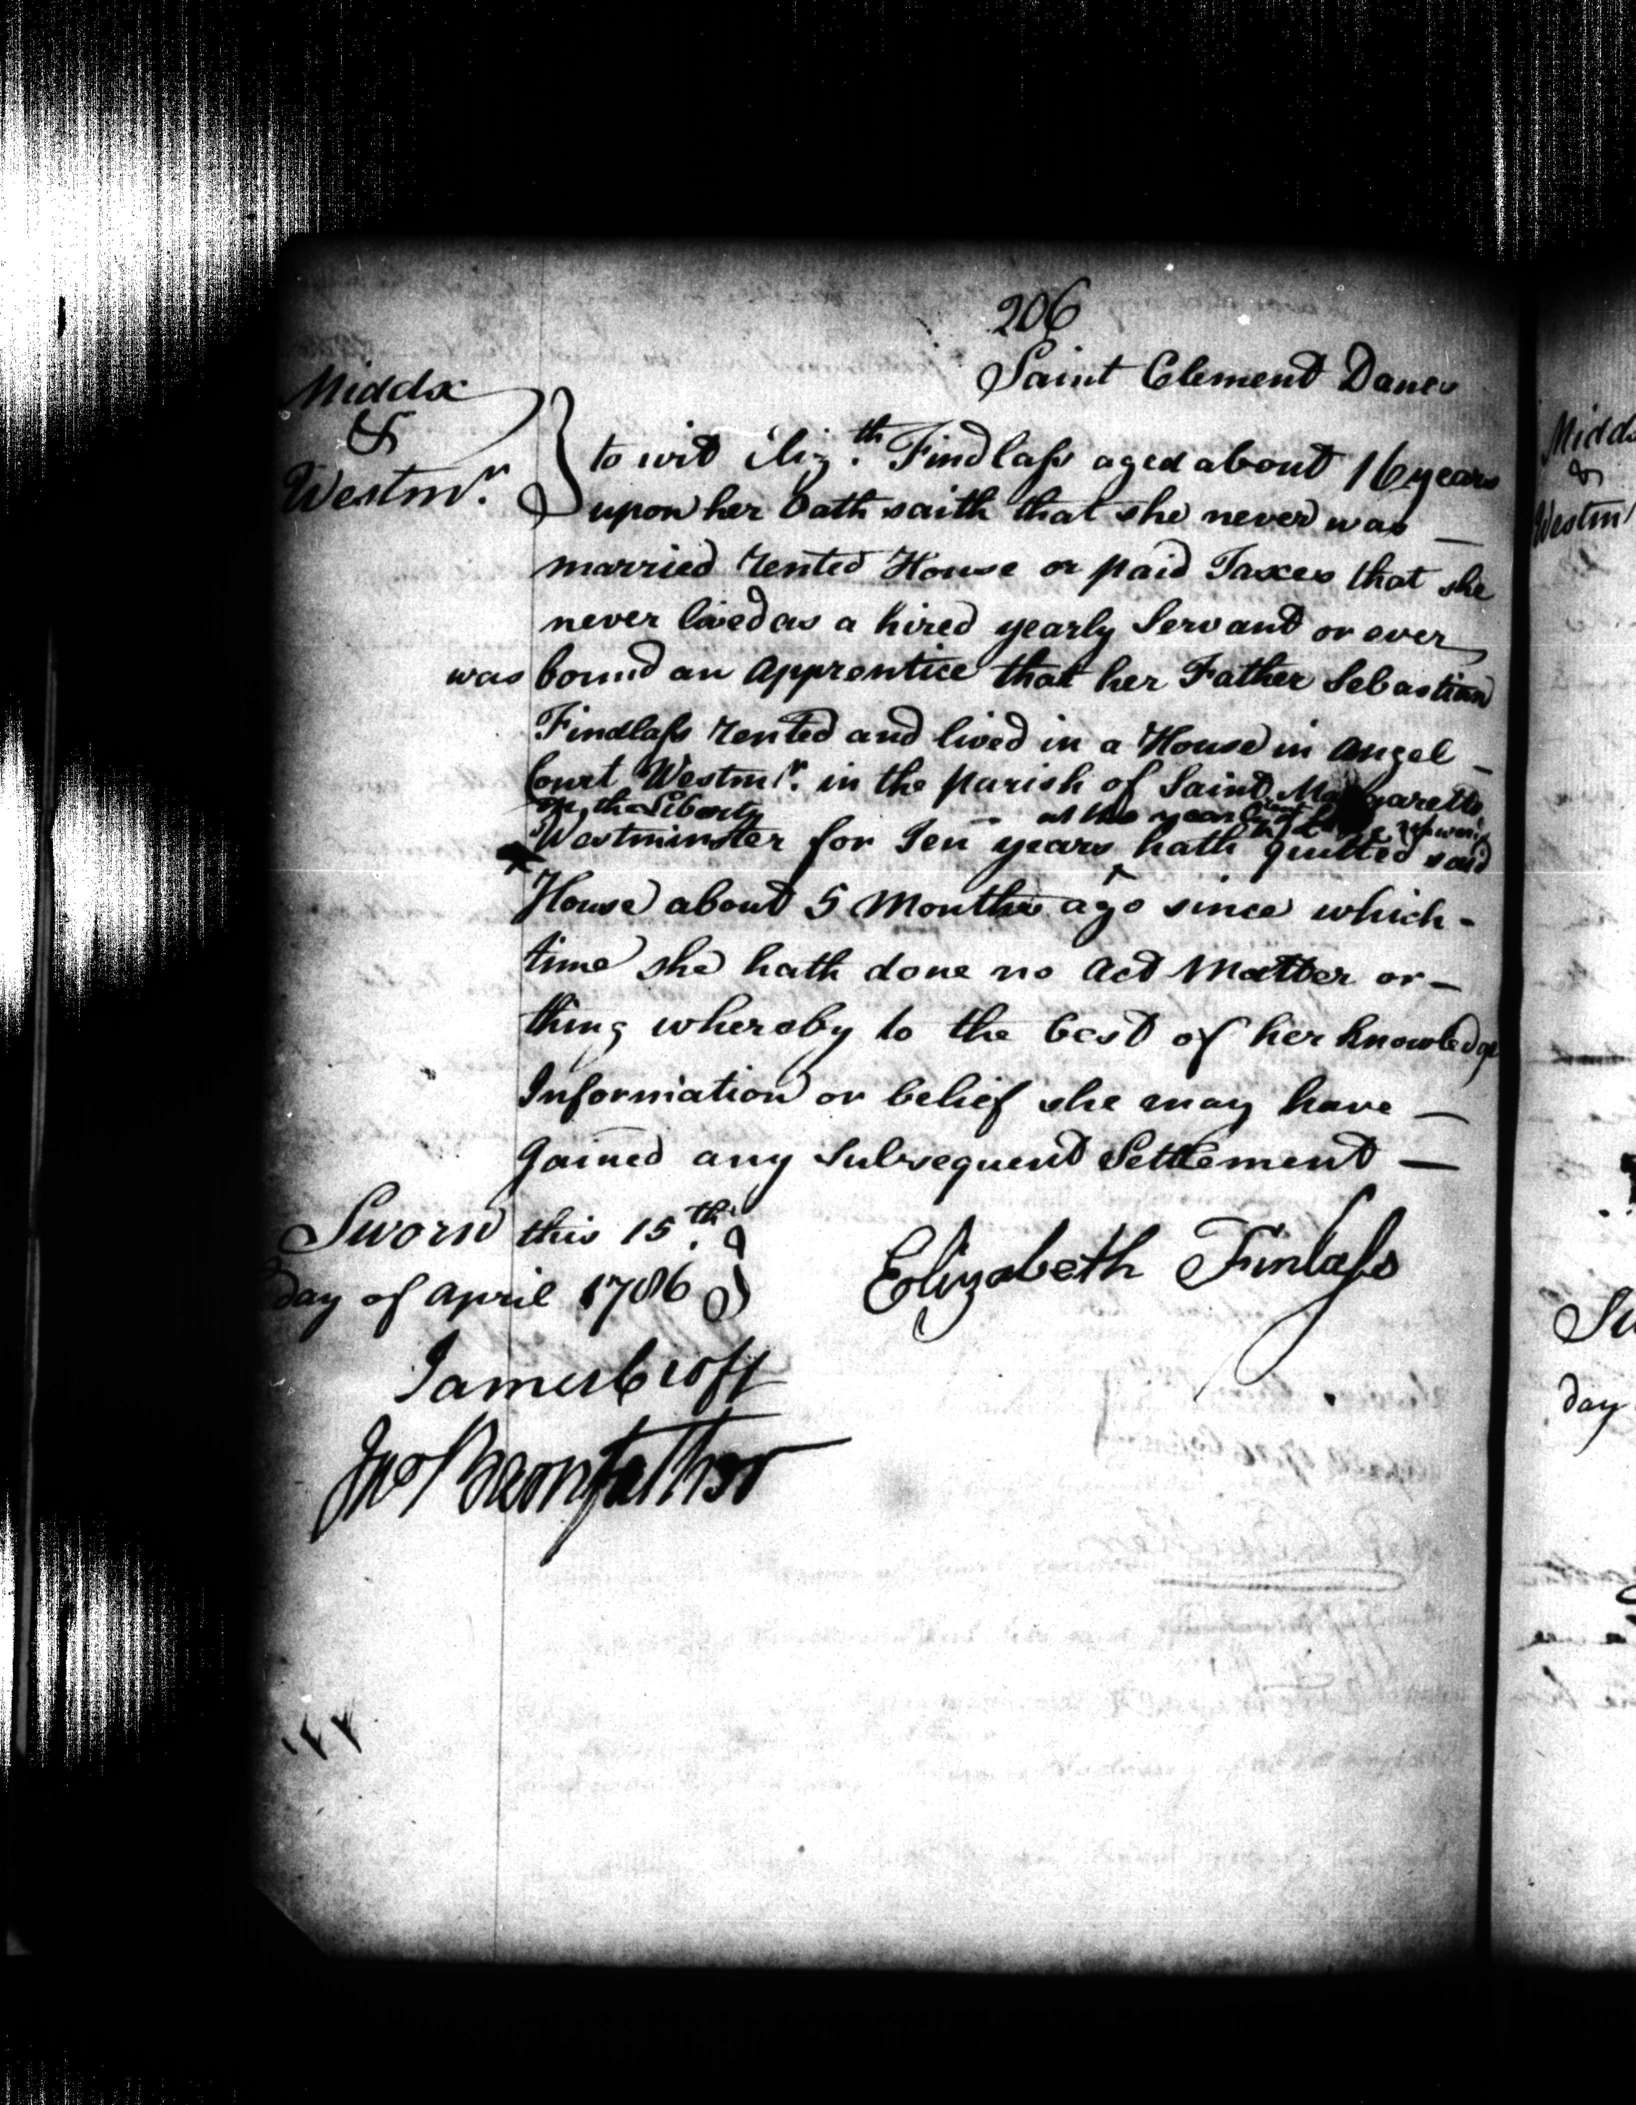 206
Saint Clement Danes
Middx
&
Westmr.
to wit Eliz.th Findlass aged about 16 years
upon her Oath saith that she never was
married rented House or paid Taxes that she
never lived as a hired yearly Servant or ever
was bound an Apprentice that her Father Sebastian
Findlass rented and lived in a House in Angel
Court Westmr. in the parish of Saint Margaretts
in the Liberty
at the yearly rent of
Westminster for Ten years hath quitted said
House about 5 Months ago since which
time she hath done no Act Matter or
thing whereby to the best of her knowledge
Information or belief she may have
gained any subsequent Settlement
Sworn this 15th.
day of April 1786
Elizabeth Finlass
James Croft
Jno Bairnfather
Middx
&
Westmr
Sw
day